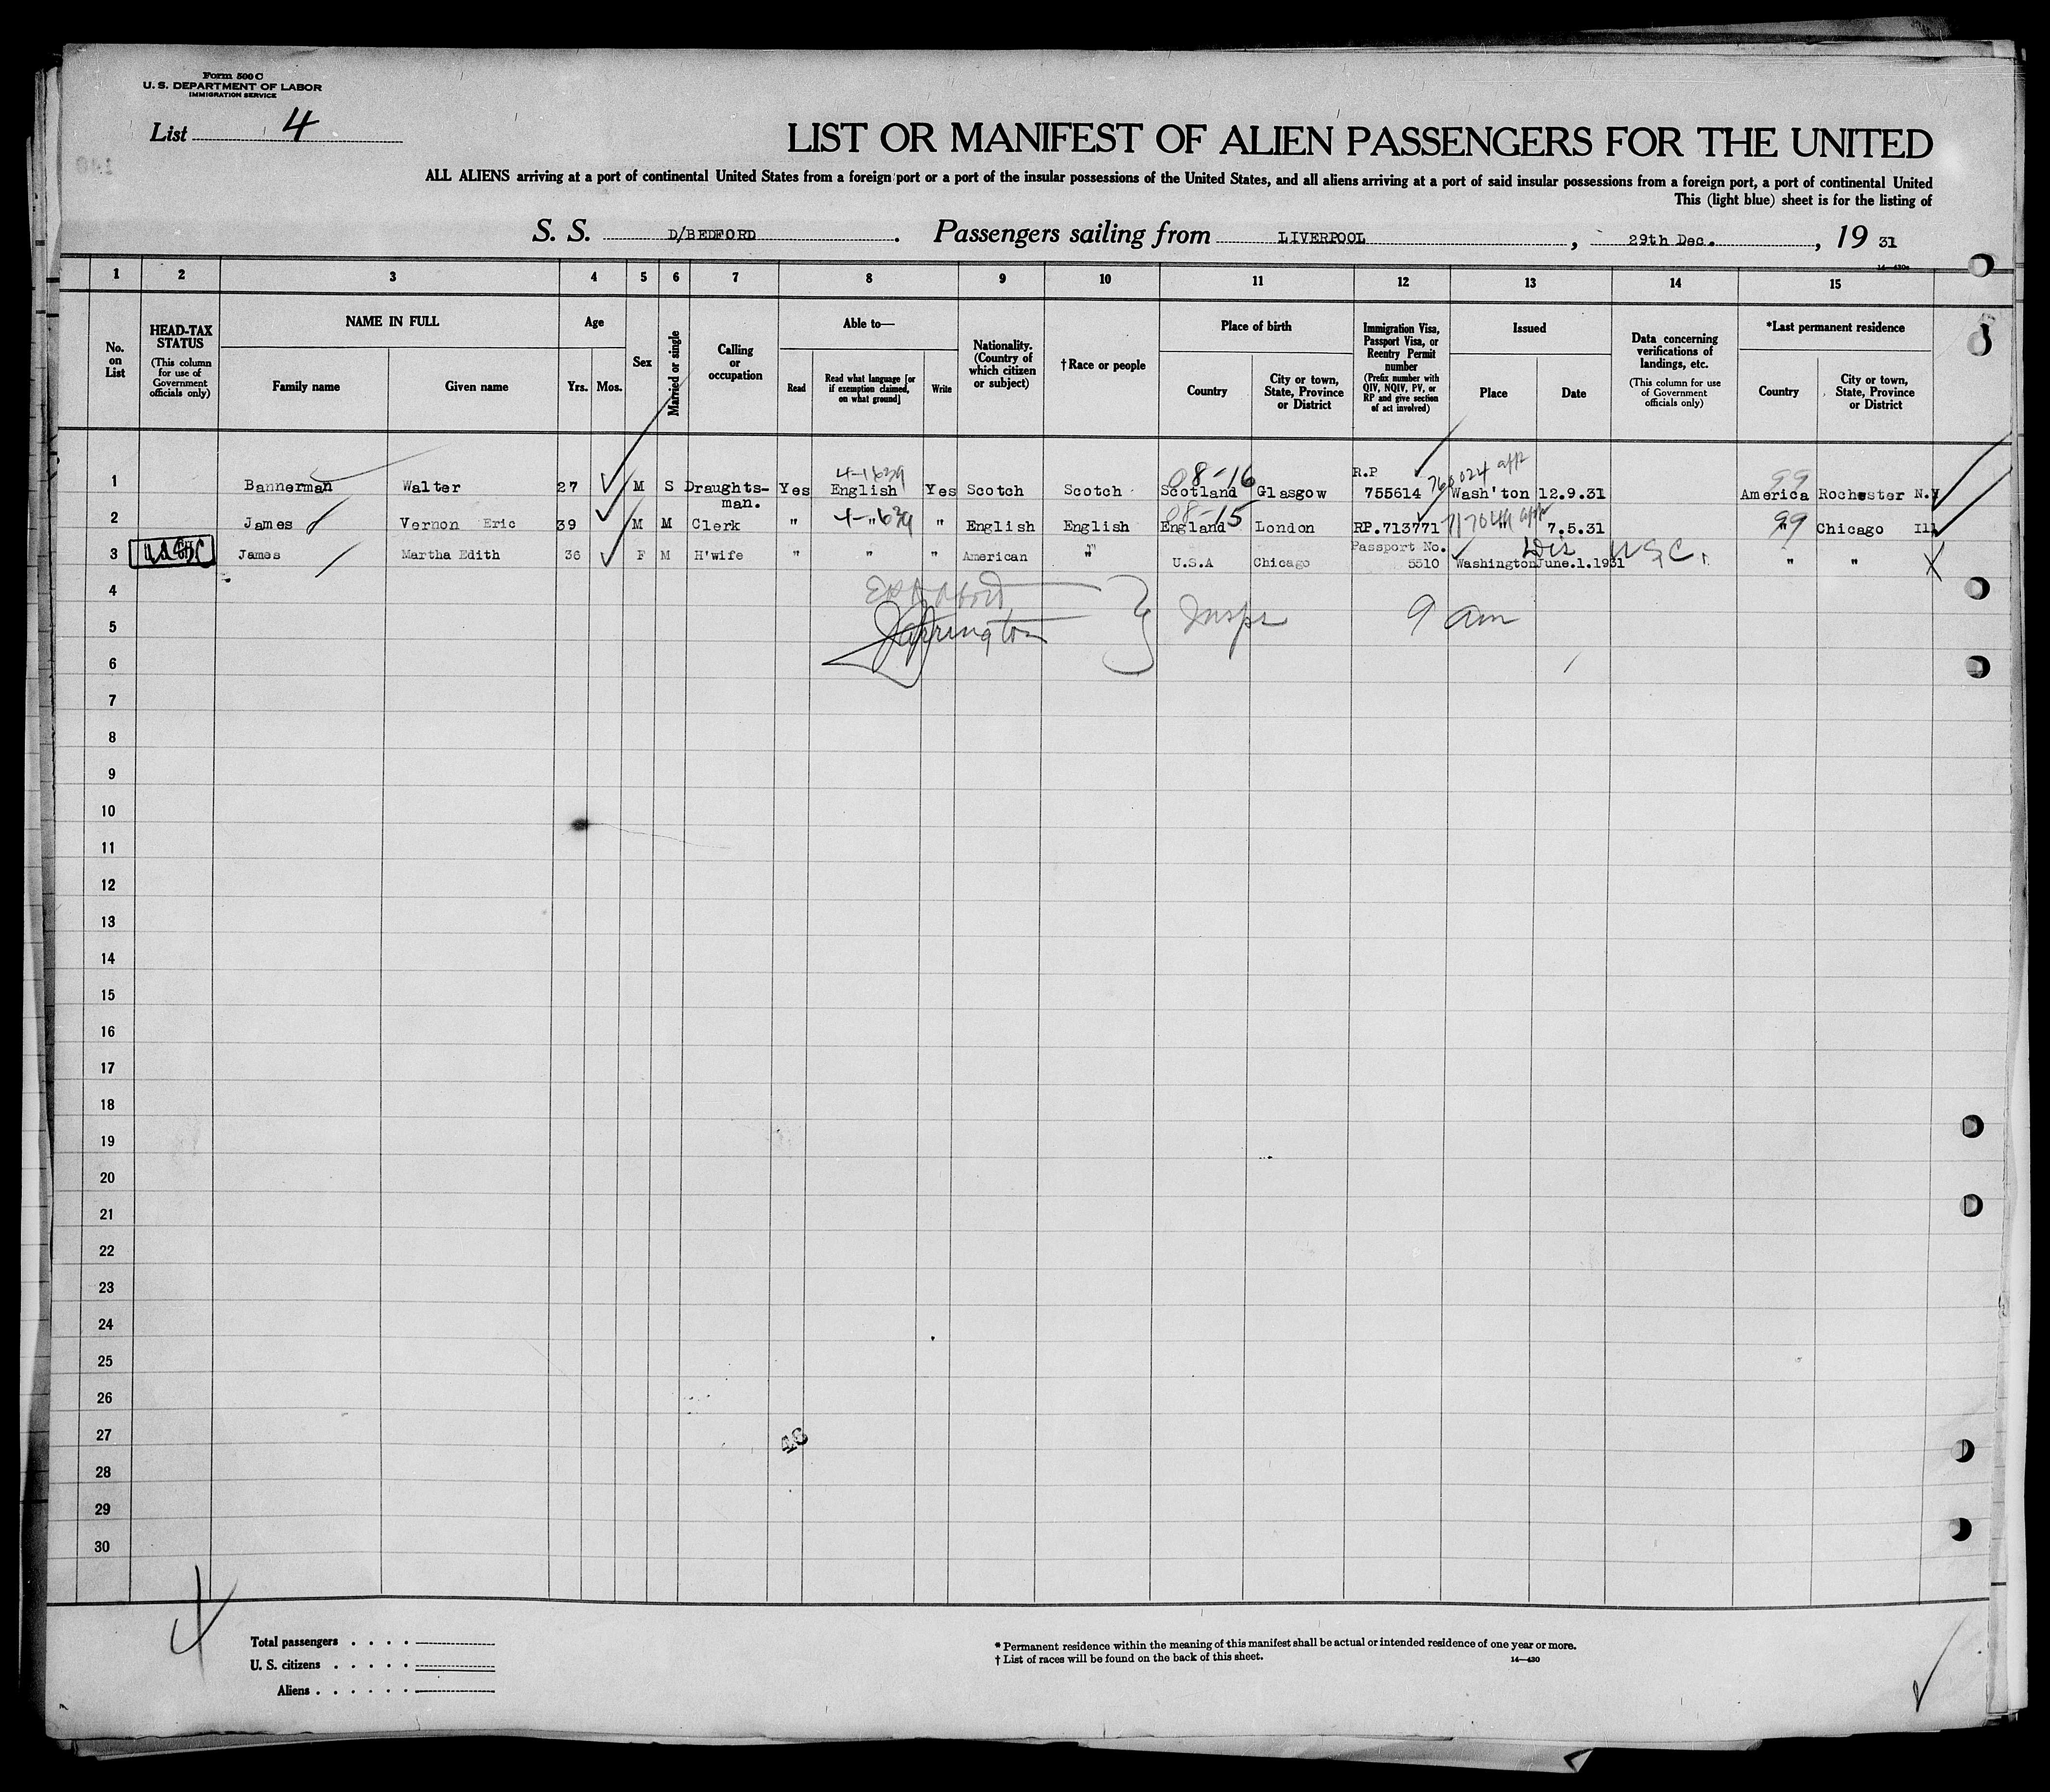 Form 500 C
U. S. DEPARTMENT OF LABOR
IMMIGRATION SERVICE
List 4
LIST OR MANIFEST OF ALIEN PASSENGERS FOR THE UNITED
ALL ALIENS arriving at a port of continental United States from a foreign port or a port of the insular possessions of the United States, and all aliens arriving at a port of said insular possessions from a foreign port, a port of continental United
This (light blue) sheet is for the listing of
S. S. D/BEDFORD. Passengers sailing from LIVERPOOL, 29th Dec., 19 31
1 2 3 4 5 6 7 8 9 10 11 12 13 14 15
No. on List
HEAD-TAX STATUS
(This column for use of Government officials only)
NAME IN FULL
Family name
Given name
Age
Yrs. Mos.
Sex
Married or single
Calling or occupation
Able to—
Read
Read what language [or if exemption claimed, on what ground]
Write
Nationality. (Country of which citizen or subject)
†Race or people
Place of birth
Country
City or town, State, Province or District
Immigration Visa, Passport Visa, or Reentry Permit number
(Prefix number with QIV, NQIV, PV, or RP and give section of act involved)
Issued
Place
Date
Data concerning verifications of landings, etc.
(This column for use of Government officials only)
*Last permanent residence
Country
City or town, State, Province or District
4-1639 08-16 R.P 768024 app 99
1 Bannerman Walter 27 M S Draughts- Yes English Yes Scotch Scotch Scotland Glasgow 755614 Wash'ton 12.9.31 America Rochester N.Y
man.
2 James Vernon Eric 39 M M Clerk " 4-"639 " English English England 08-15 London RP.713771 " 7.5.31 99 " Chicago Ill
Passport No.
3 James Martha Edith 36 F M H'wife " " " American " U.S.A Chicago 5510 Washington June.1.1931 U.S.C. " "
4
5 Insps 9 am
6
7
8
9
10
11
12
13
14
15
16
17
18
19
20
21
22
23
24
25
26
27
28
29
30
Total passengers . . . .
U. S. citizens . . . . .
Aliens . . . . . .
* Permanent residence within the meaning of this manifest shall be actual or intended residence of one year or more.
† List of races will be found on the back of this sheet.
14—430